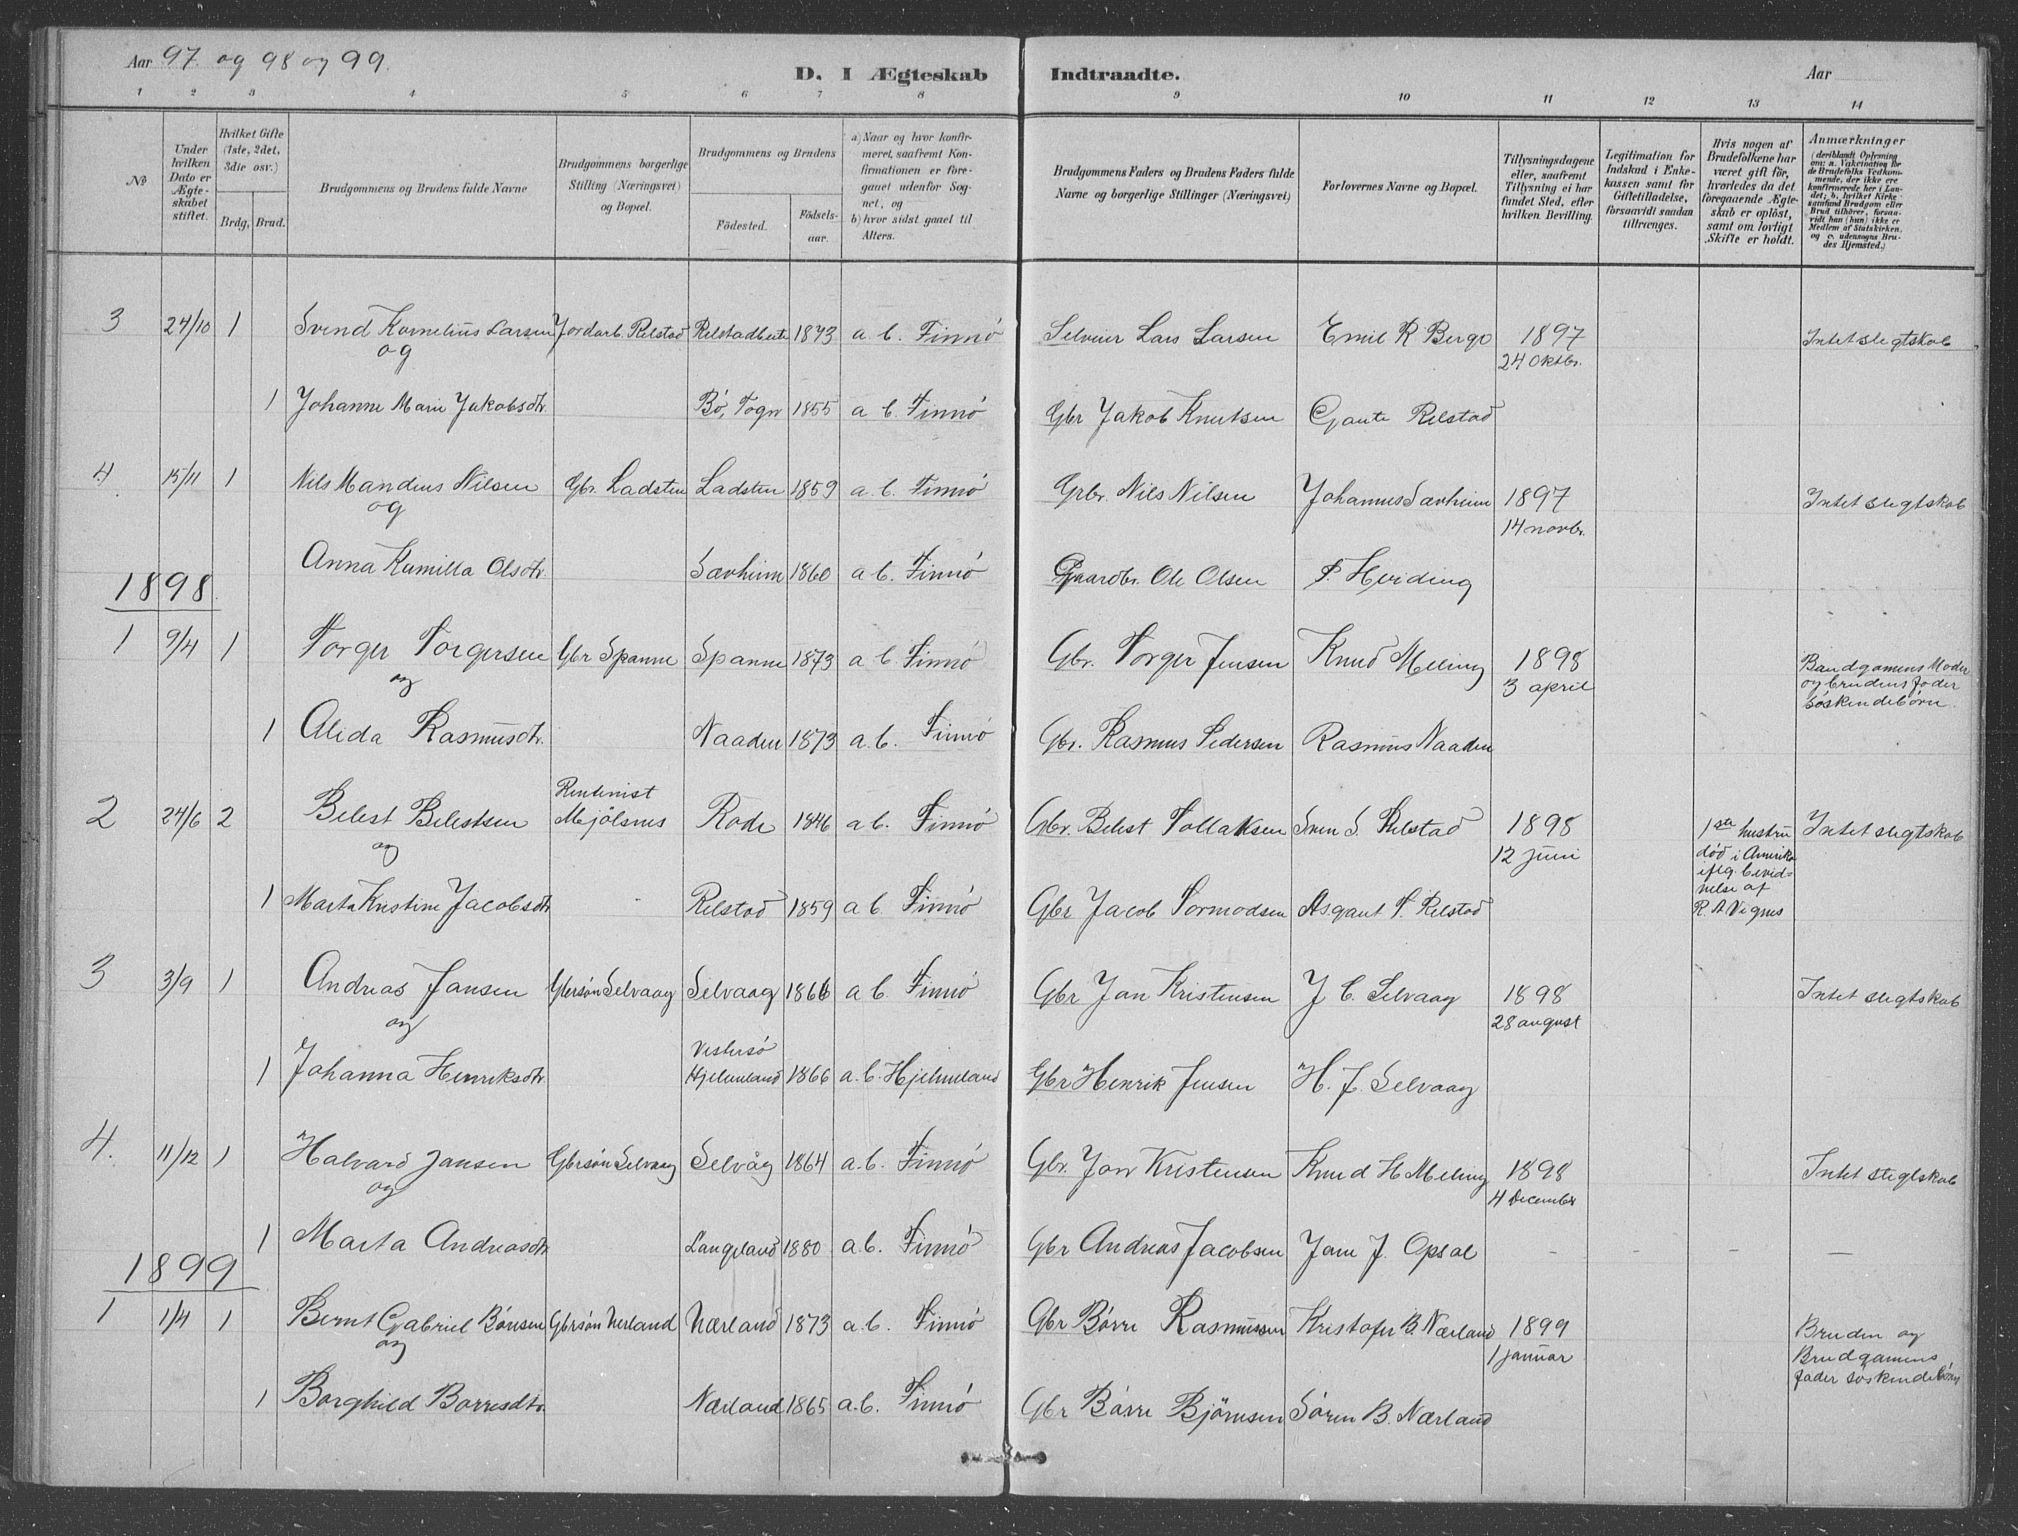 Aar 97 og 98 og 99.
D. I Ægteskab Indtraadte.
Aar
1 2 3 4 5 6 7 8 9 10 11 12 13 14
No
Under hvilken Dato er Ægteskabet stiftet.
Hvilket Gifte (1ste, 2det, 3die osv.)
Brdg. Brud.
Brudgommens og Brudens fulde Navne
Brudgommens borgerlige Stilling (Næringsvei) og Bopæl.
Brudgommens og Brudens
Fødested. Fødselsaar.
a) Naar og hvor konfirmeret, saafremt Konfirmationen er foregaaet udenfor Sognet, og
b) hvor sidst gaaet til Alters.
Brudgommens Faders og Brudens Faders fulde Navne og borgerlige Stillinger (Næringsvei)
Forlovernes Navne og Bopæl.
Tillysningsdagene eller, saafremt Tillysning ei har fundet Sted, efter hvilken Bevilling.
Legitimation for Indskud i Enkekassen samt for Giftetilladelse, forsaavidt saadan tiltrænges.
Hvis nogen af Brudefolkene har været gift før, hvorledes da det foregaaende Ægteskab er opløst, samt om lovligt Skifte er holdt.
Anmærkninger
(deriblandt Oplysning om: a. Vakcination for de Brudefolks Vedkommende, der ikke ere konfirmerede her i Landet; b. hvilket Kirkesamfund Brudgom eller Brud tilhører, forsaavidt han (hun) ikke er Medlem af Statskirken, og c. udensogns Brudes Hjemsted.)
3 24/10 1 Svend Kornelius Larsen Jordarb. Relstad Relstad 1873 a b. Finnö Selveier Lars Larsen Emil R Bergo 1897 Intet slegtskab
og 24 Oktbr.
1 Johanne Marie Jakobsdtr. Bö, Sogn 1855 a b. Finnö Gbr Jakob Knutsen Gaute Relstad
4. 15/11 1 Nils Mandius Nilsen Gbr. Ladsten Ladsten 1859 a. b. Finnö Grbr. Nils Nilsen Johannes Sævheim 1897 Intet slegtskab
og 14 novbr.
Anna Kamilla Olsdtr. Sævheim 1860 a b. Finnö Gaardbr. Ole Olsen Hviding
1898.
1 9/4 1 Torger Torgersen Gbr Spanne Spanne 1873 a b. Finnö Gbr. Torger Jensen Knud Meling 1898 Baudgamens Moder
og 3 april og brudens fader
søskendebørn.
1 Alida Rasmusdtr. Naaden 1873 a. b. Finnö Gbr. Rasmus Pedersen Rasmus Naaden
2 24/6 2 Belest Belestsen Rentenist Mjölsnes Rode 1846 a b. Finnö Gbr. Belest Tollaksen Sven S. Relstad 1898 1ste hustru Intet slegtskab
og 12 juni død i Amerika
iflg. bevidnelse af
1 Marta Kristine Jacobsdtr Relstad 1859 a b. Finnö Gbr Jacob Tormodsen Asgaut T. Relstad R. A Vignes
3 3/9 1 Andreas Jansen Gbrsøn Selvaag Selvaag 1866 a b. Finnö Gbr Jan Kristensen J C. Selvaag 1898 Intet slegtskab
og 28 august
1 Johanna Henriksdtr. Vestersö Hjelmeland 1866 a. b. Hjelmeland Gbr Henrik Jensen H. J. Selvaag
4. 11/12 1 Halvard Jansen Gbrsøn Selvaag Selvåg 1864 a. b. Finnö Gbr. Jan Kristensen Knud H Meling 1898 Intet slegtskab
og 4 December
1 Marta Andreasdtr Langeland 1880 a. b. Finnö Gbr Andreas Jacobsen Jane J. Opsal — — — —
1899
1 1/4 1 Bernt Gabriel Børresen Gbrsøn Nerland Nærland 1873 a. b. Finnö Gbr Børre Rasmussen Kristofer B. Nærland 1899 Bruden og
og 1 januar Brudgamens
fader søskendebørn
1 Borghild Børresdtr. Nærland 1865 a. b. Finnö Gbr Børre Bjørnsen Søren B. Nærland